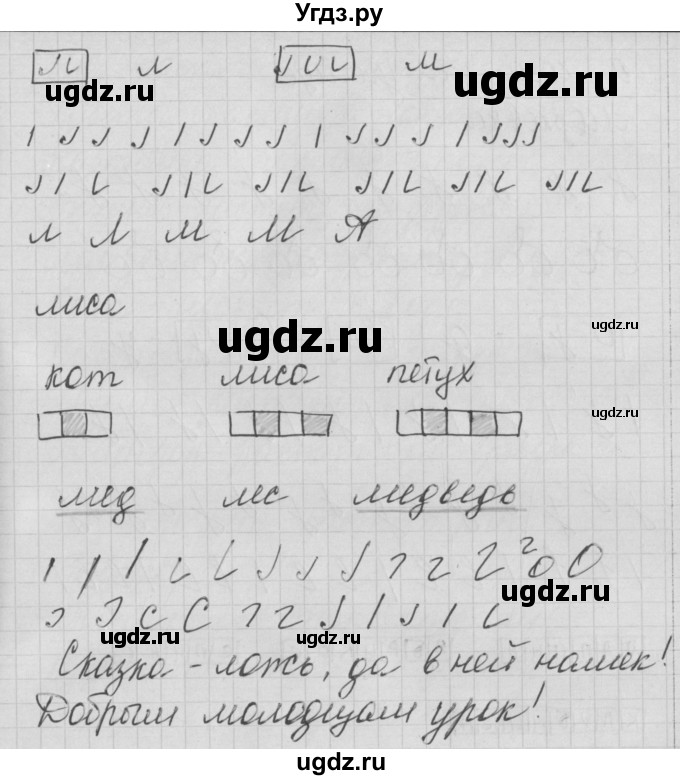 Угдз.ру
л м
ugdz.ru ugdz.ru
л Л м М А
лиса
ugdz.ru ugdz.ru
кот лиса петух
ugdz.ru
мед лес медведь
ugdz.ru
о О
с С
ugdz.ru ugdz.ru
Сказка - ложь, да в ней намек!
Добрым молодцам урок!
ugdz.ru ugdz.ru